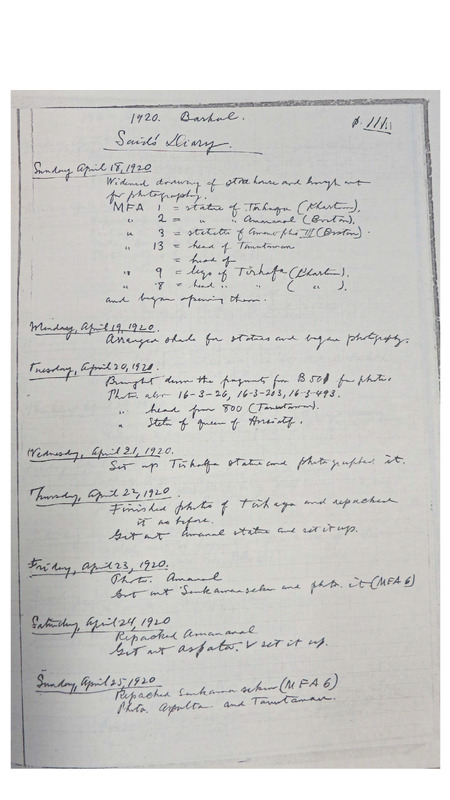 1920. Barkal.
p. 111.
Said's Diary.
Sunday April 18, 1920
Widened doorway of storehouse and brought out
for photography.
MFA 1 = statue of Tirhaqa (Khartum).
" 2 = " " Amananal (Boston).
" 3 = statuette of Amenophis III (Boston).
" 13 = head of Tanutaman
= head of
" 9 = legs of Tirhaqa (Khartum).
" 8 = head " " ( " ).
and began opening them.
Monday, April 19, 1920.
Arranged shade for statues and began photography.
Tuesday, April 20, 1920.
Brought down the fragments from B 501 for photo.
Photo also 16-3-26, 16-3-203, 16-3-493.
" head from 800 (Tanutaman).
" Stela of queen of Horsiotf.
Wednesday, April 21, 1920.
Set up Tirhaqa statue and photographed it.
Thursday, April 22, 1920.
Finished photos of Tirhaqa and repacked
it as before.
Got out Amanal statue and set it up.
Friday, April 23, 1920.
Photo. Amanal
Got out Senkamanseken and photo. it (MFA 6)
Saturday, April 24, 1920
Repacked Amananal
Got out Aspalta. & set it up.
Sunday, April 25, 1920
Repacked Senkamanseken (MFA 6)
Photo. Aspalta and Tanutaman.